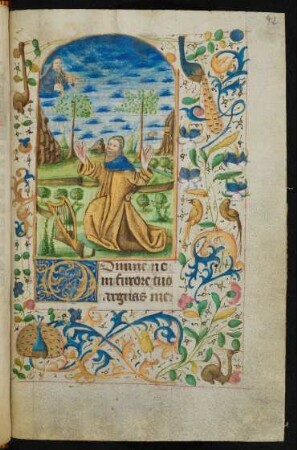 92
Domine ne
in furore tuo
arguas me